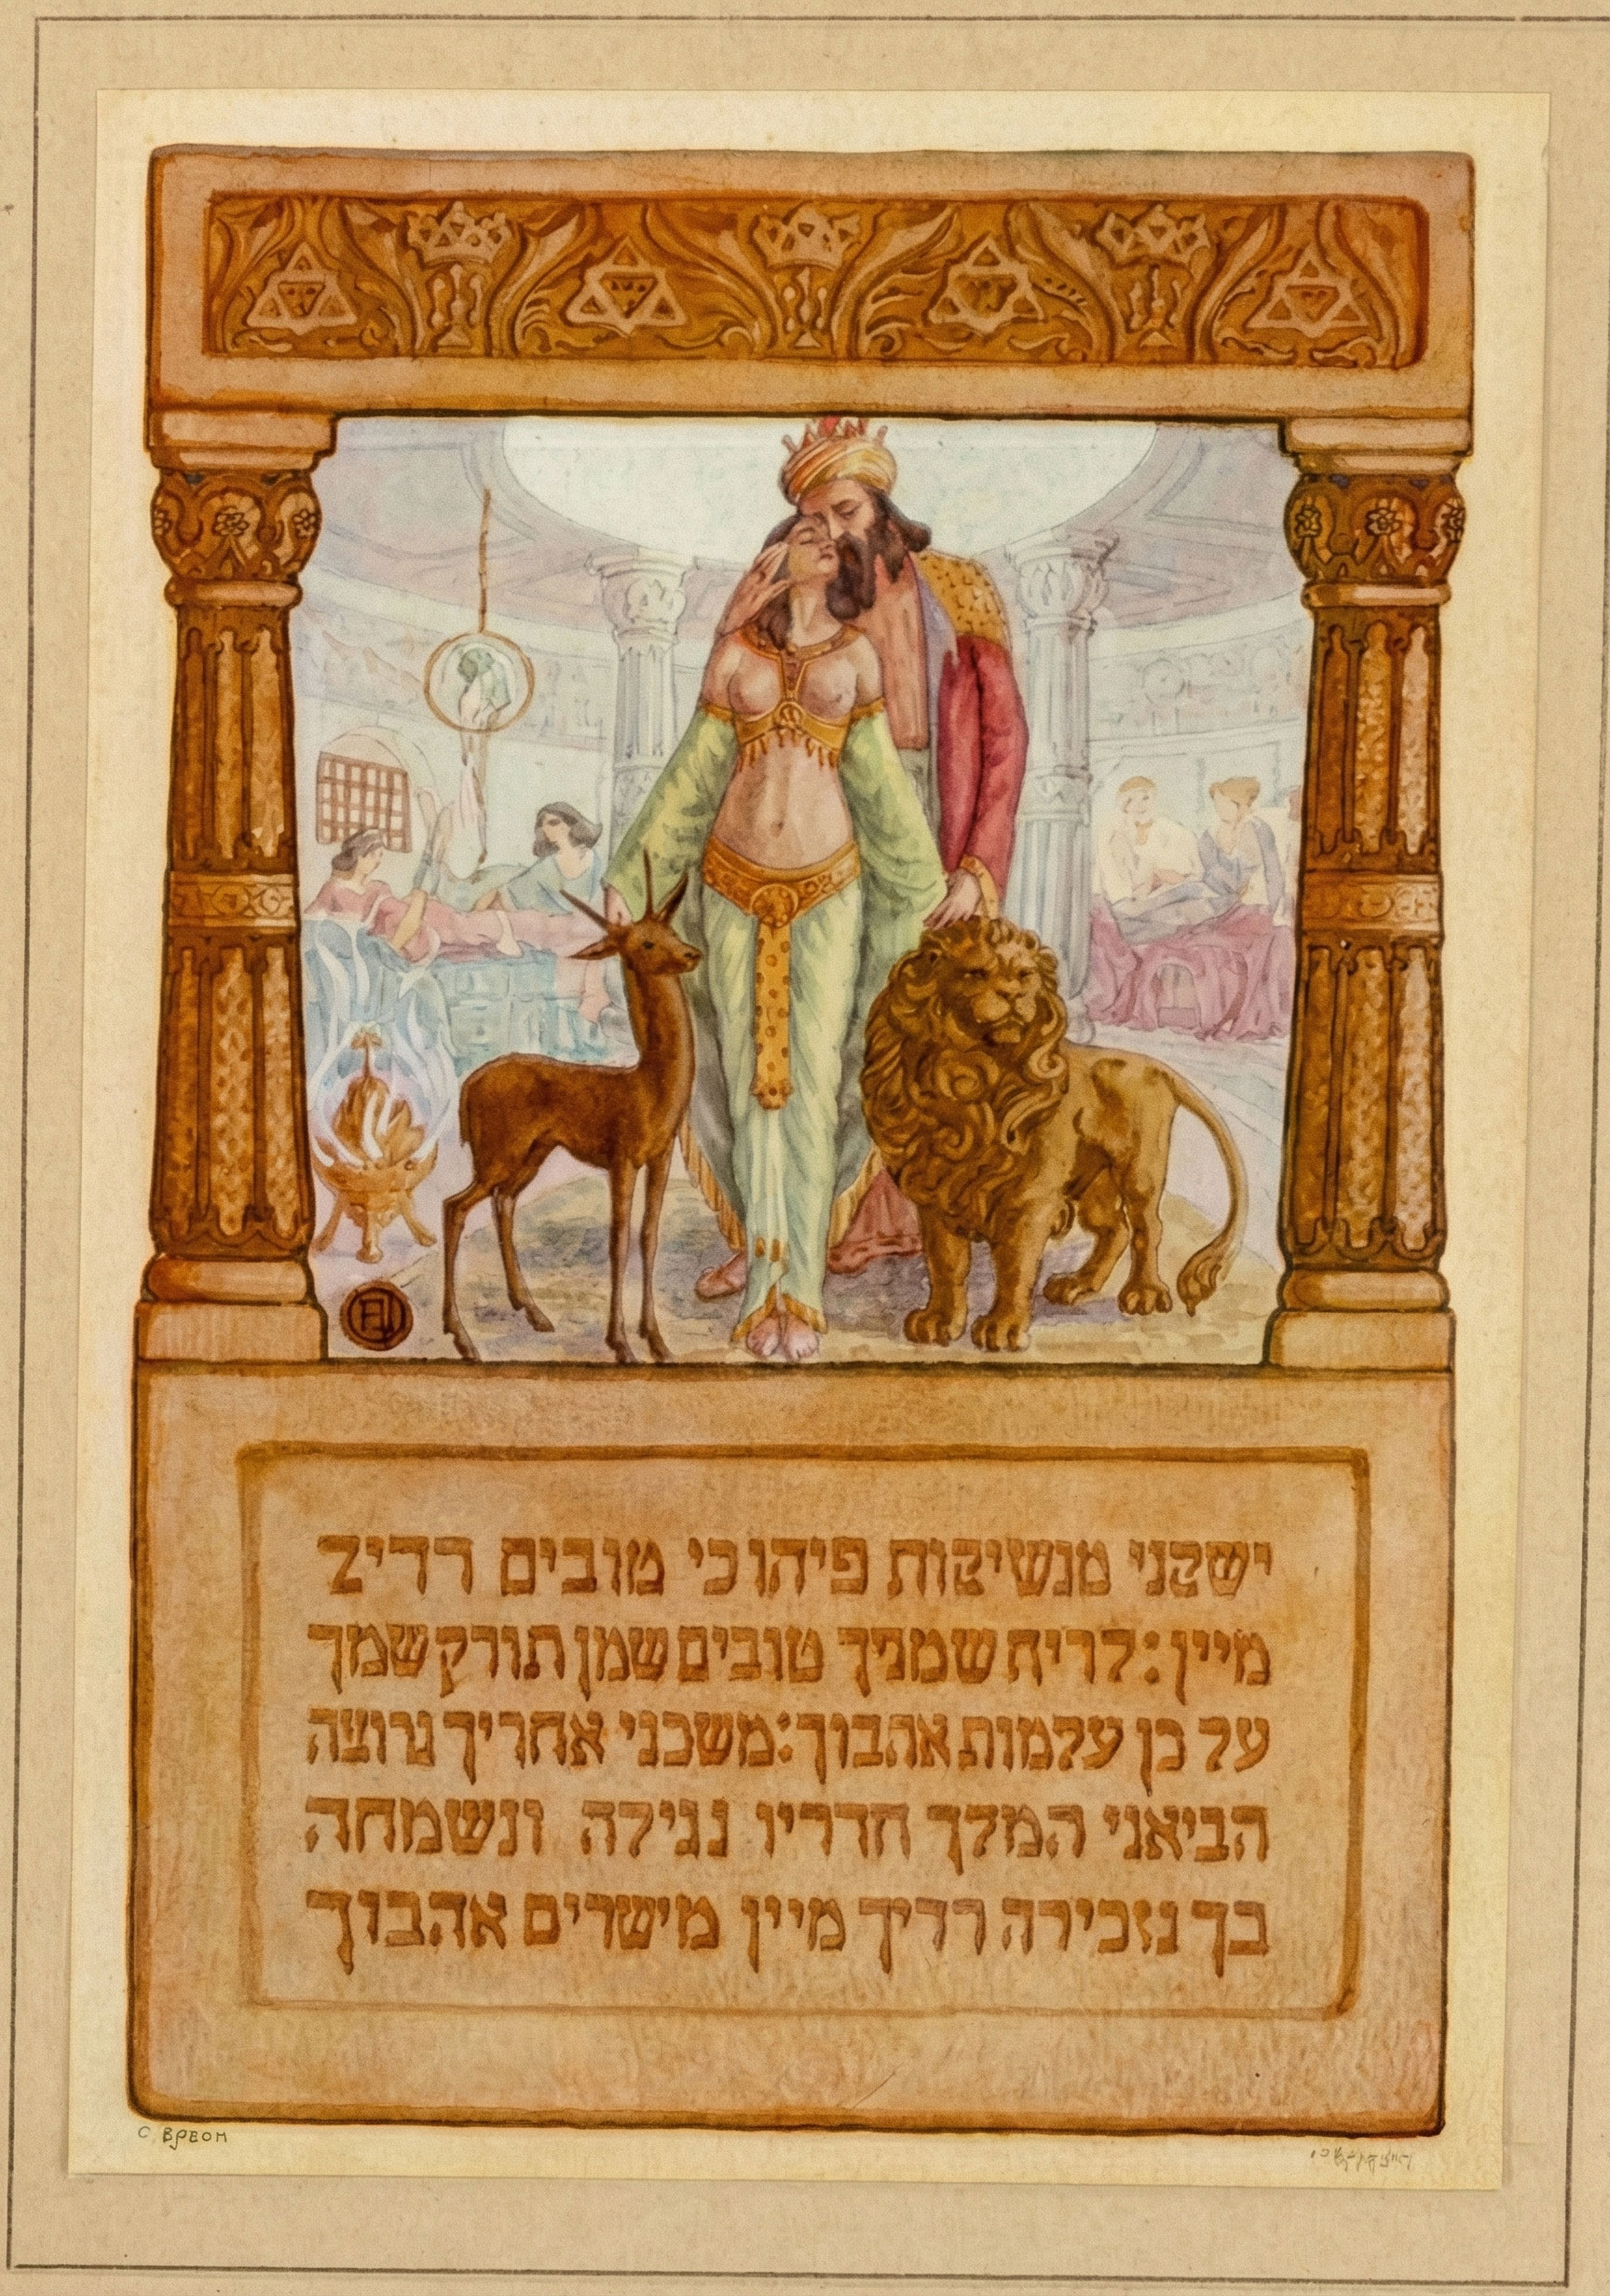 ישקני מנשיקות פיהו כי טובים דדיך
מיין: לריח שמניך טובים שמן תורק שמך
על כן עלמות אהבוך: משכני אחריך נרוצה
הביאני המלך חדריו נגילה ונשמחה
בך נזכירה דדיך מיין מישרים אהבוך